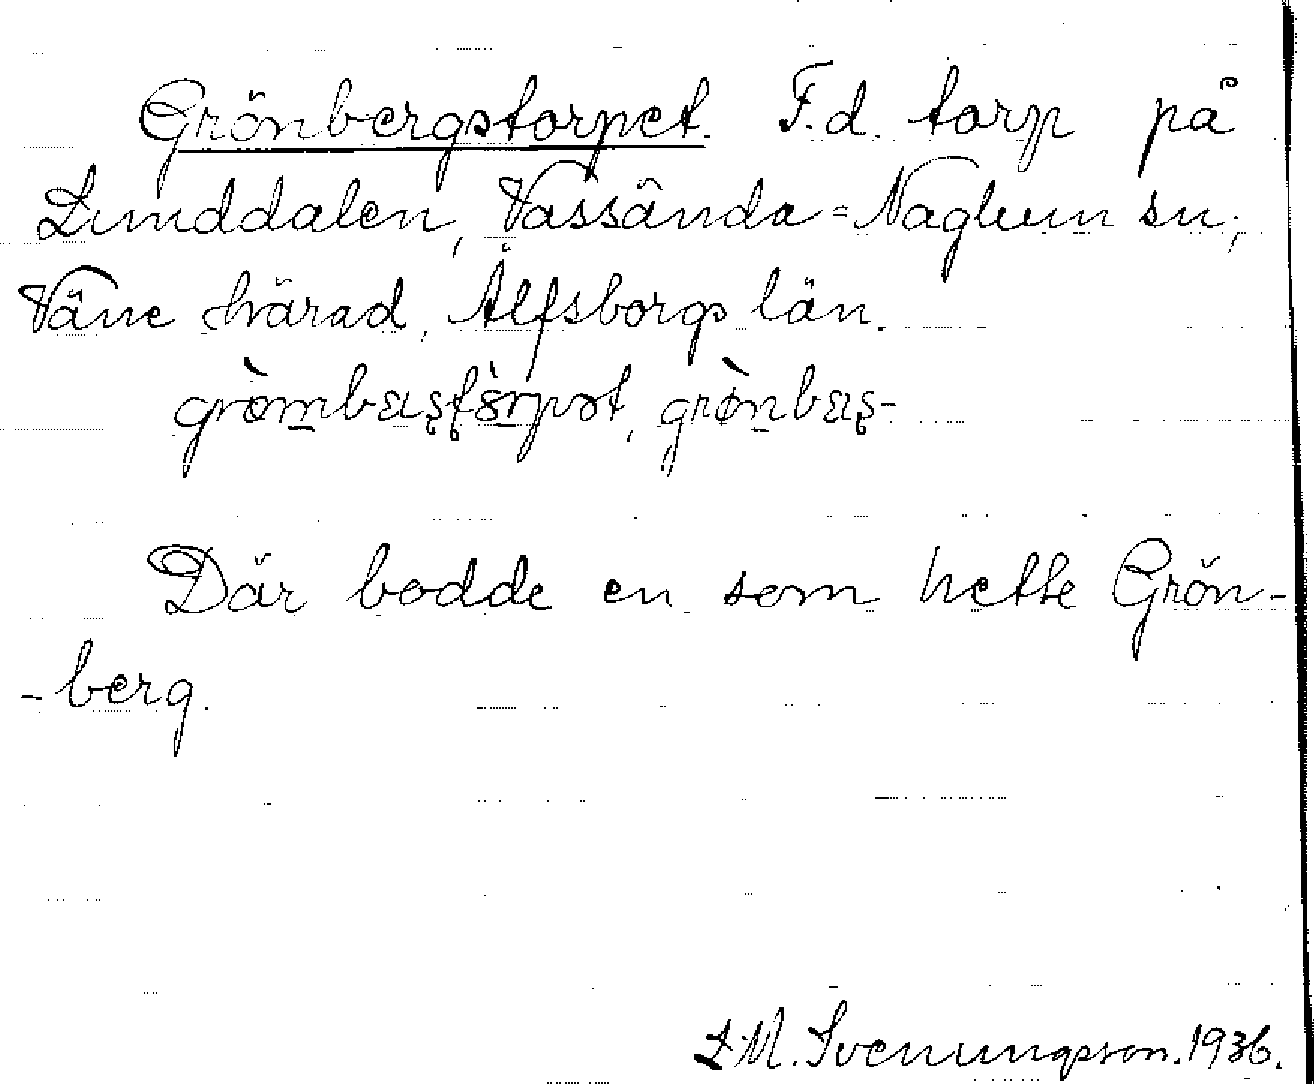 Grönbergstorpet. F.d. torp på
Lunddalen, Vassända=Naglum sn,
Väne härad, Älfsborgs län.
Där bodde en som hette Grön-
-berg.
L.M. Svenungsson. 1936.